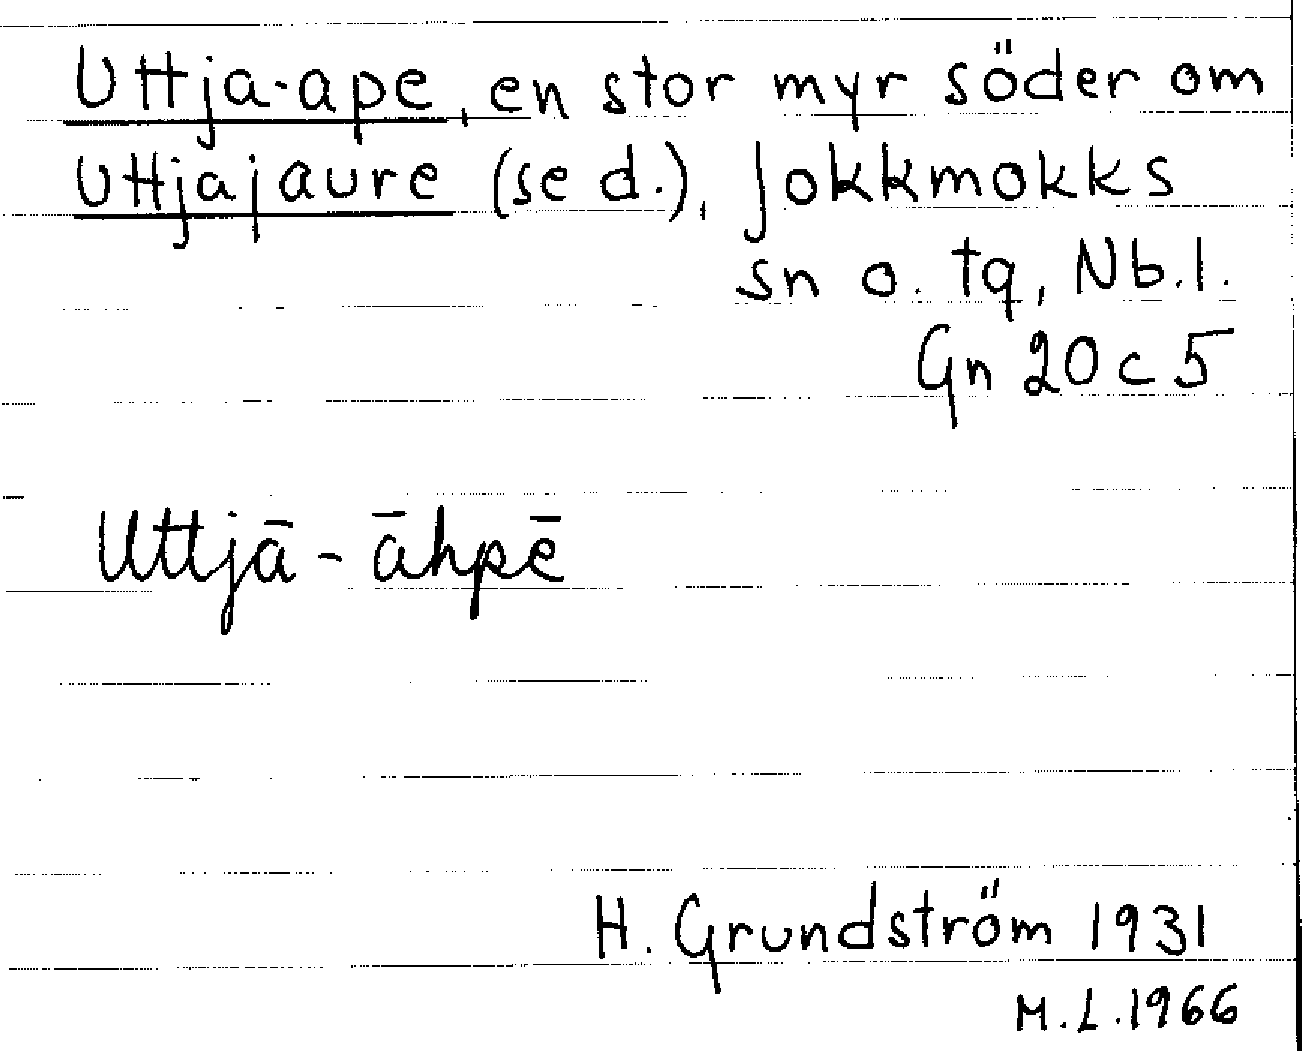 Uttja-ape, en stor myr söder om
Uttjajaure (se d.), Jokkmokks
sn o. tg, Nb.l.
Gn 20 c 5
Uttjā - āhpē
H. Grundström 1931
M.L.1966